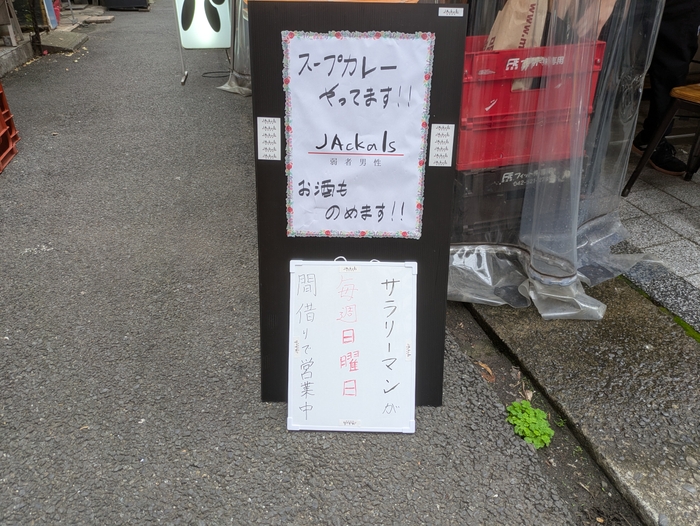 スープカレー
やってます!!
JAckals
弱者男性
お酒も
のめます!!
サラリーマンが
毎週日曜日
間借りで営業中